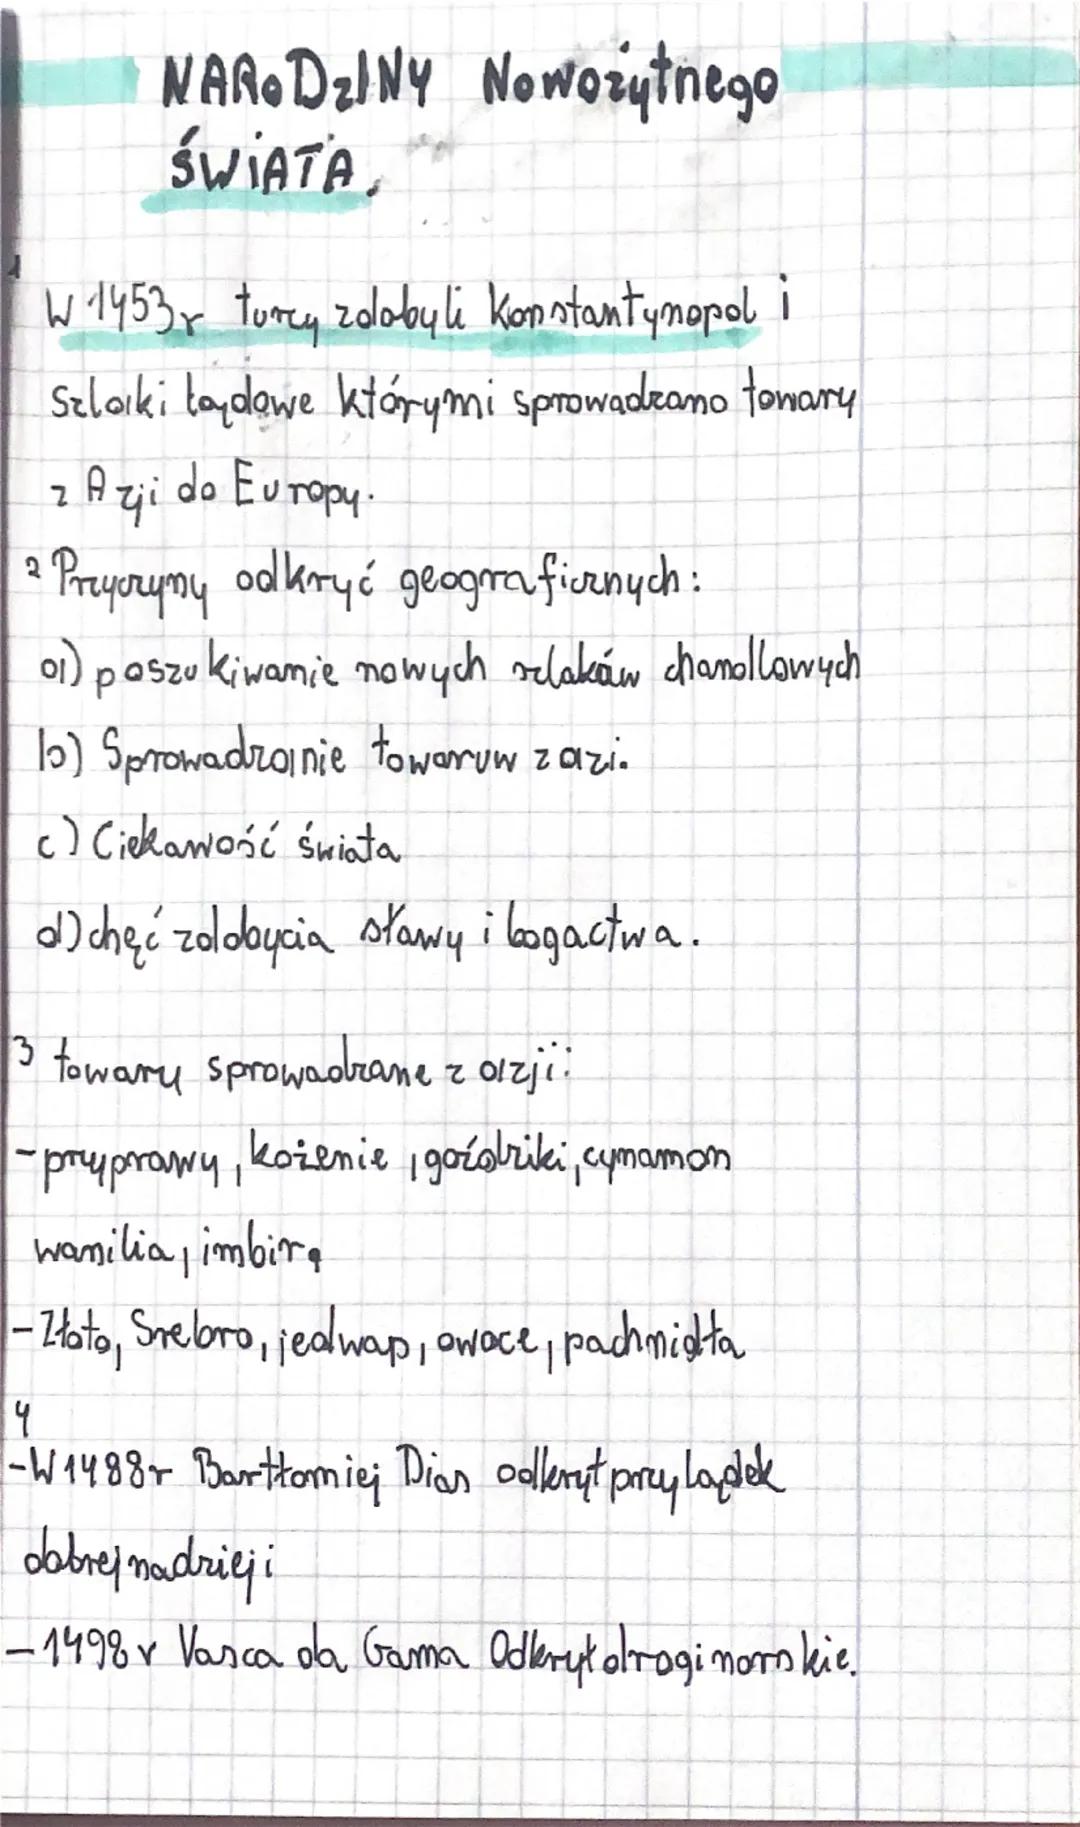 NARODzINY Nowożytnego
ŚWiATA.
1
W 1453r turcy zdobyli Konstantynopol i
Szlaki lądowe którymi sprowadzano towary
z Azji do Europy.
2 Przyczyny odkryć geograficznych:
a) poszukiwanie nowych szlaków chandlowych
b) Sprowadzanie towaruw z azi.
c) Ciekawość świata
d) chęć zdobycia sławy i bogactwa.
3 towary sprowadzane z azji:
-przyprawy, kożenie, goździki, cynamon
wanilia, imbir,
-Złoto, Srebro, jedwap, owoce, pachnidła
4
-W 1488r Bartłomiej Dias odkrył przylądek
dobrej nadzieji
-1498r Vasca da Gama Odkrył drogi morskie.